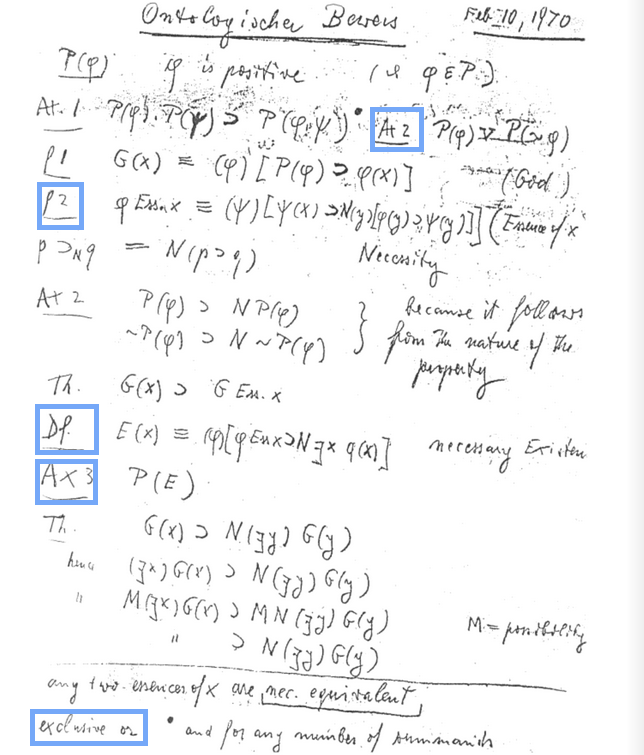 Ontologischer Beweis Feb 10, 1970
P(φ) φ is positive (ie φ ∈ P.)
At. 1 P(φ).P(ψ) ⊃ P(φ.ψ)• At 2 P(φ) ∨ P(~φ)
P1 G(x) ≡ (φ)[P(φ) ⊃ φ(x)] (God)
P2 φ Ess.x ≡ (ψ)[ψ(x) ⊃ N(y)[φ(y) ⊃ ψ(y)]] (Essence of x
p ⊃N q = N(p ⊃ q) Necessity
At 2 P(φ) ⊃ NP(φ) } because it follows
~P(φ) ⊃ N ~P(φ) from the nature of the
property
Th. G(x) ⊃ G Ess. x
Df. E(x) ≡ (φ)[φ Ess x ⊃ N ∃x φ(x)] necessary Existen
Ax 3 P(E)
Th. G(x) ⊃ N(∃y) G(y)
hence (∃x)G(x) ⊃ N(∃y) G(y)
" M(∃x)G(x) ⊃ MN(∃y) G(y) M = possibility
" ⊃ N(∃y) G(y)
any two essences of x are nec. equivalent
exclusive or • and for any number of summands